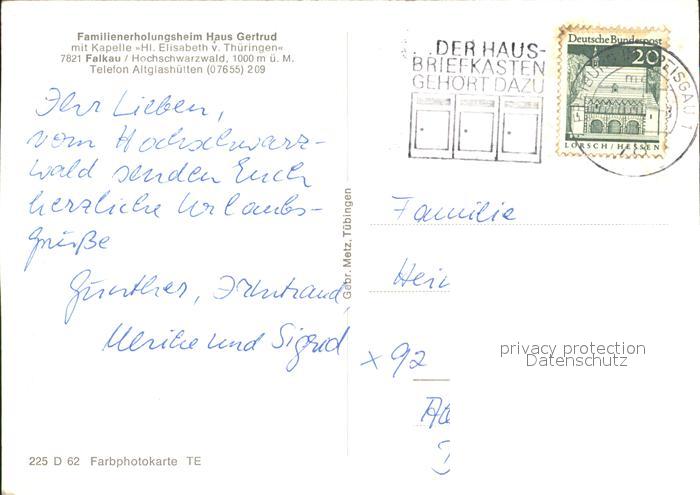 Familienerholungsheim Haus Gertrud
mit Kapelle »Hl. Elisabeth v. Thüringen«
7821 Falkau / Hochschwarzwald, 1000 m ü. M.
Telefon Altglashütten (07655) 209
Ihr Lieben,
vom Hochschwarz-
wald senden Euch
herzliche Urlaubs-
grüße
Günther, Irmtraud,
Ulrike und Sigrid
225 D 62 Farbphotokarte TE
Gebr. Metz, Tübingen
...DER HAUS-
BRIEFKASTEN
GEHÖRT DAZU
Deutsche Bundespost
20
LORSCH/HESSEN
Familie
Hei
x 92
privacy protection
Datenschutz